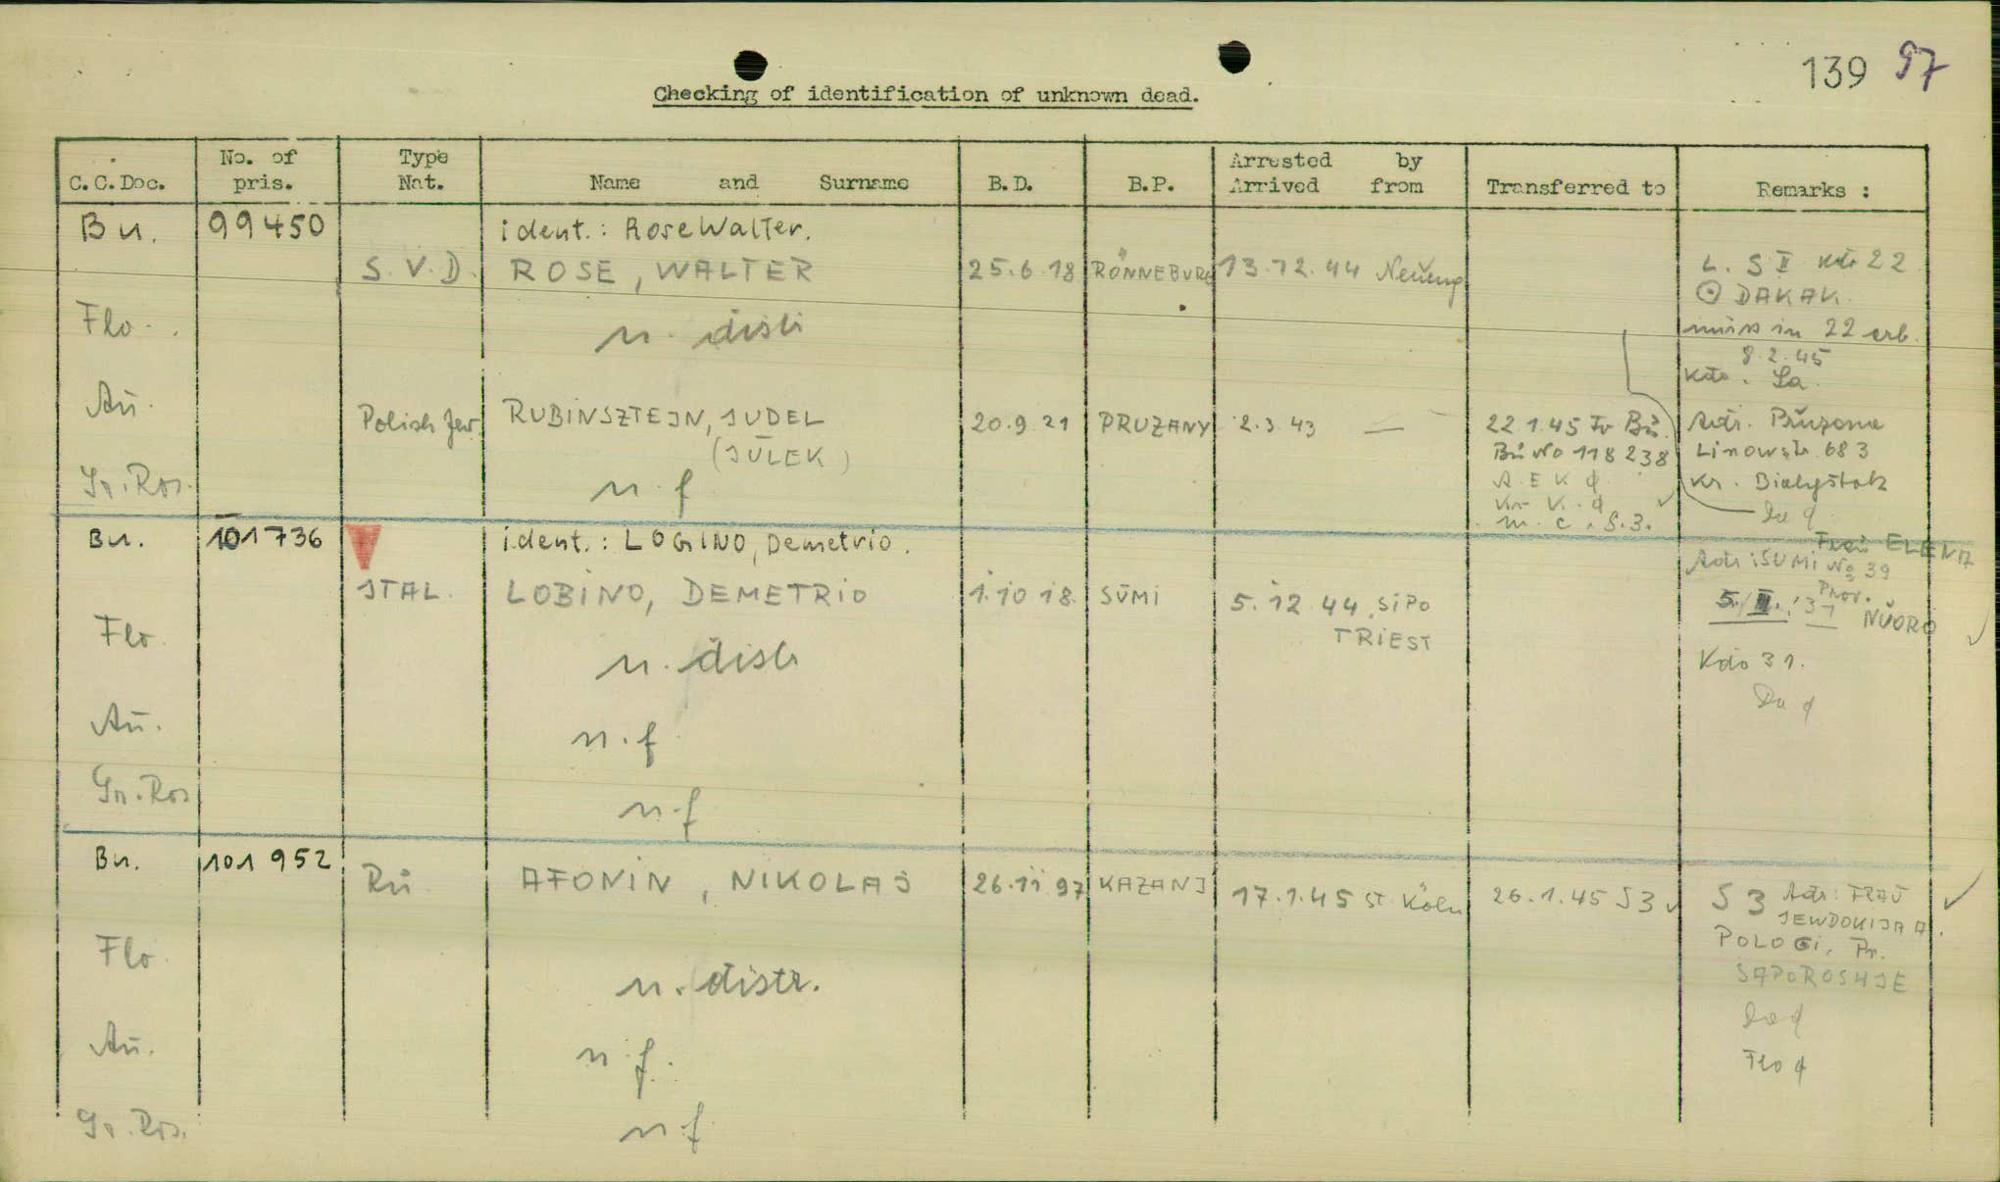 139 97
Checking of identification of unknown dead.
C.C.Doc. No. of pris. Type Nat. Name and Surname B.D. B.P. Arrested by Arrived from Transferred to Remarks :
Bu. 99450 ident.: Rose Walter.
S.V.D. ROSE, WALTER 25.6.18 RÖNNEBURG 13.12.44 Neueng L. S II 22
DAKAK.
Flo. n. distr in 22 erb.
8.2.45
Kdo.
Au. Polish Jew. RUBINSZTEJN, JUDEL 20.9.21 PRUZANY 2.3.43 — 22.1.45 Bū. Adr.
(JŪLEK) Bū No 118238 Linowstr. 683
Gr.Ros. n.f A E K Kr. Bialystok
m. c. S.3.
Bu. 101736 ident.: LOGINO, Demetrio. Frau ELENA
Adr: SUMI No 39
ITAL. LOBINO, DEMETRIO 1.10.18. SŪMI 5.12.44 SIPO 5./II./31 Prov.
TRIEST NŪORO
Flo n. distr Kdo 31.
Da
Au. n.f
Gr.Ros n.f
Bu. 101 952 Rū AFONIN, NIKOLAJ 26.11.97 KAZANJ 17.1.45 St. Köln 26.1.45 S3 S 3 Adr: FRAU
JEWDOKIJA A.
POLOGI, Pr.
Flo n. distr. SAPOROSHJE
Au. n.f.
Flo
Gr.Ros. n.f